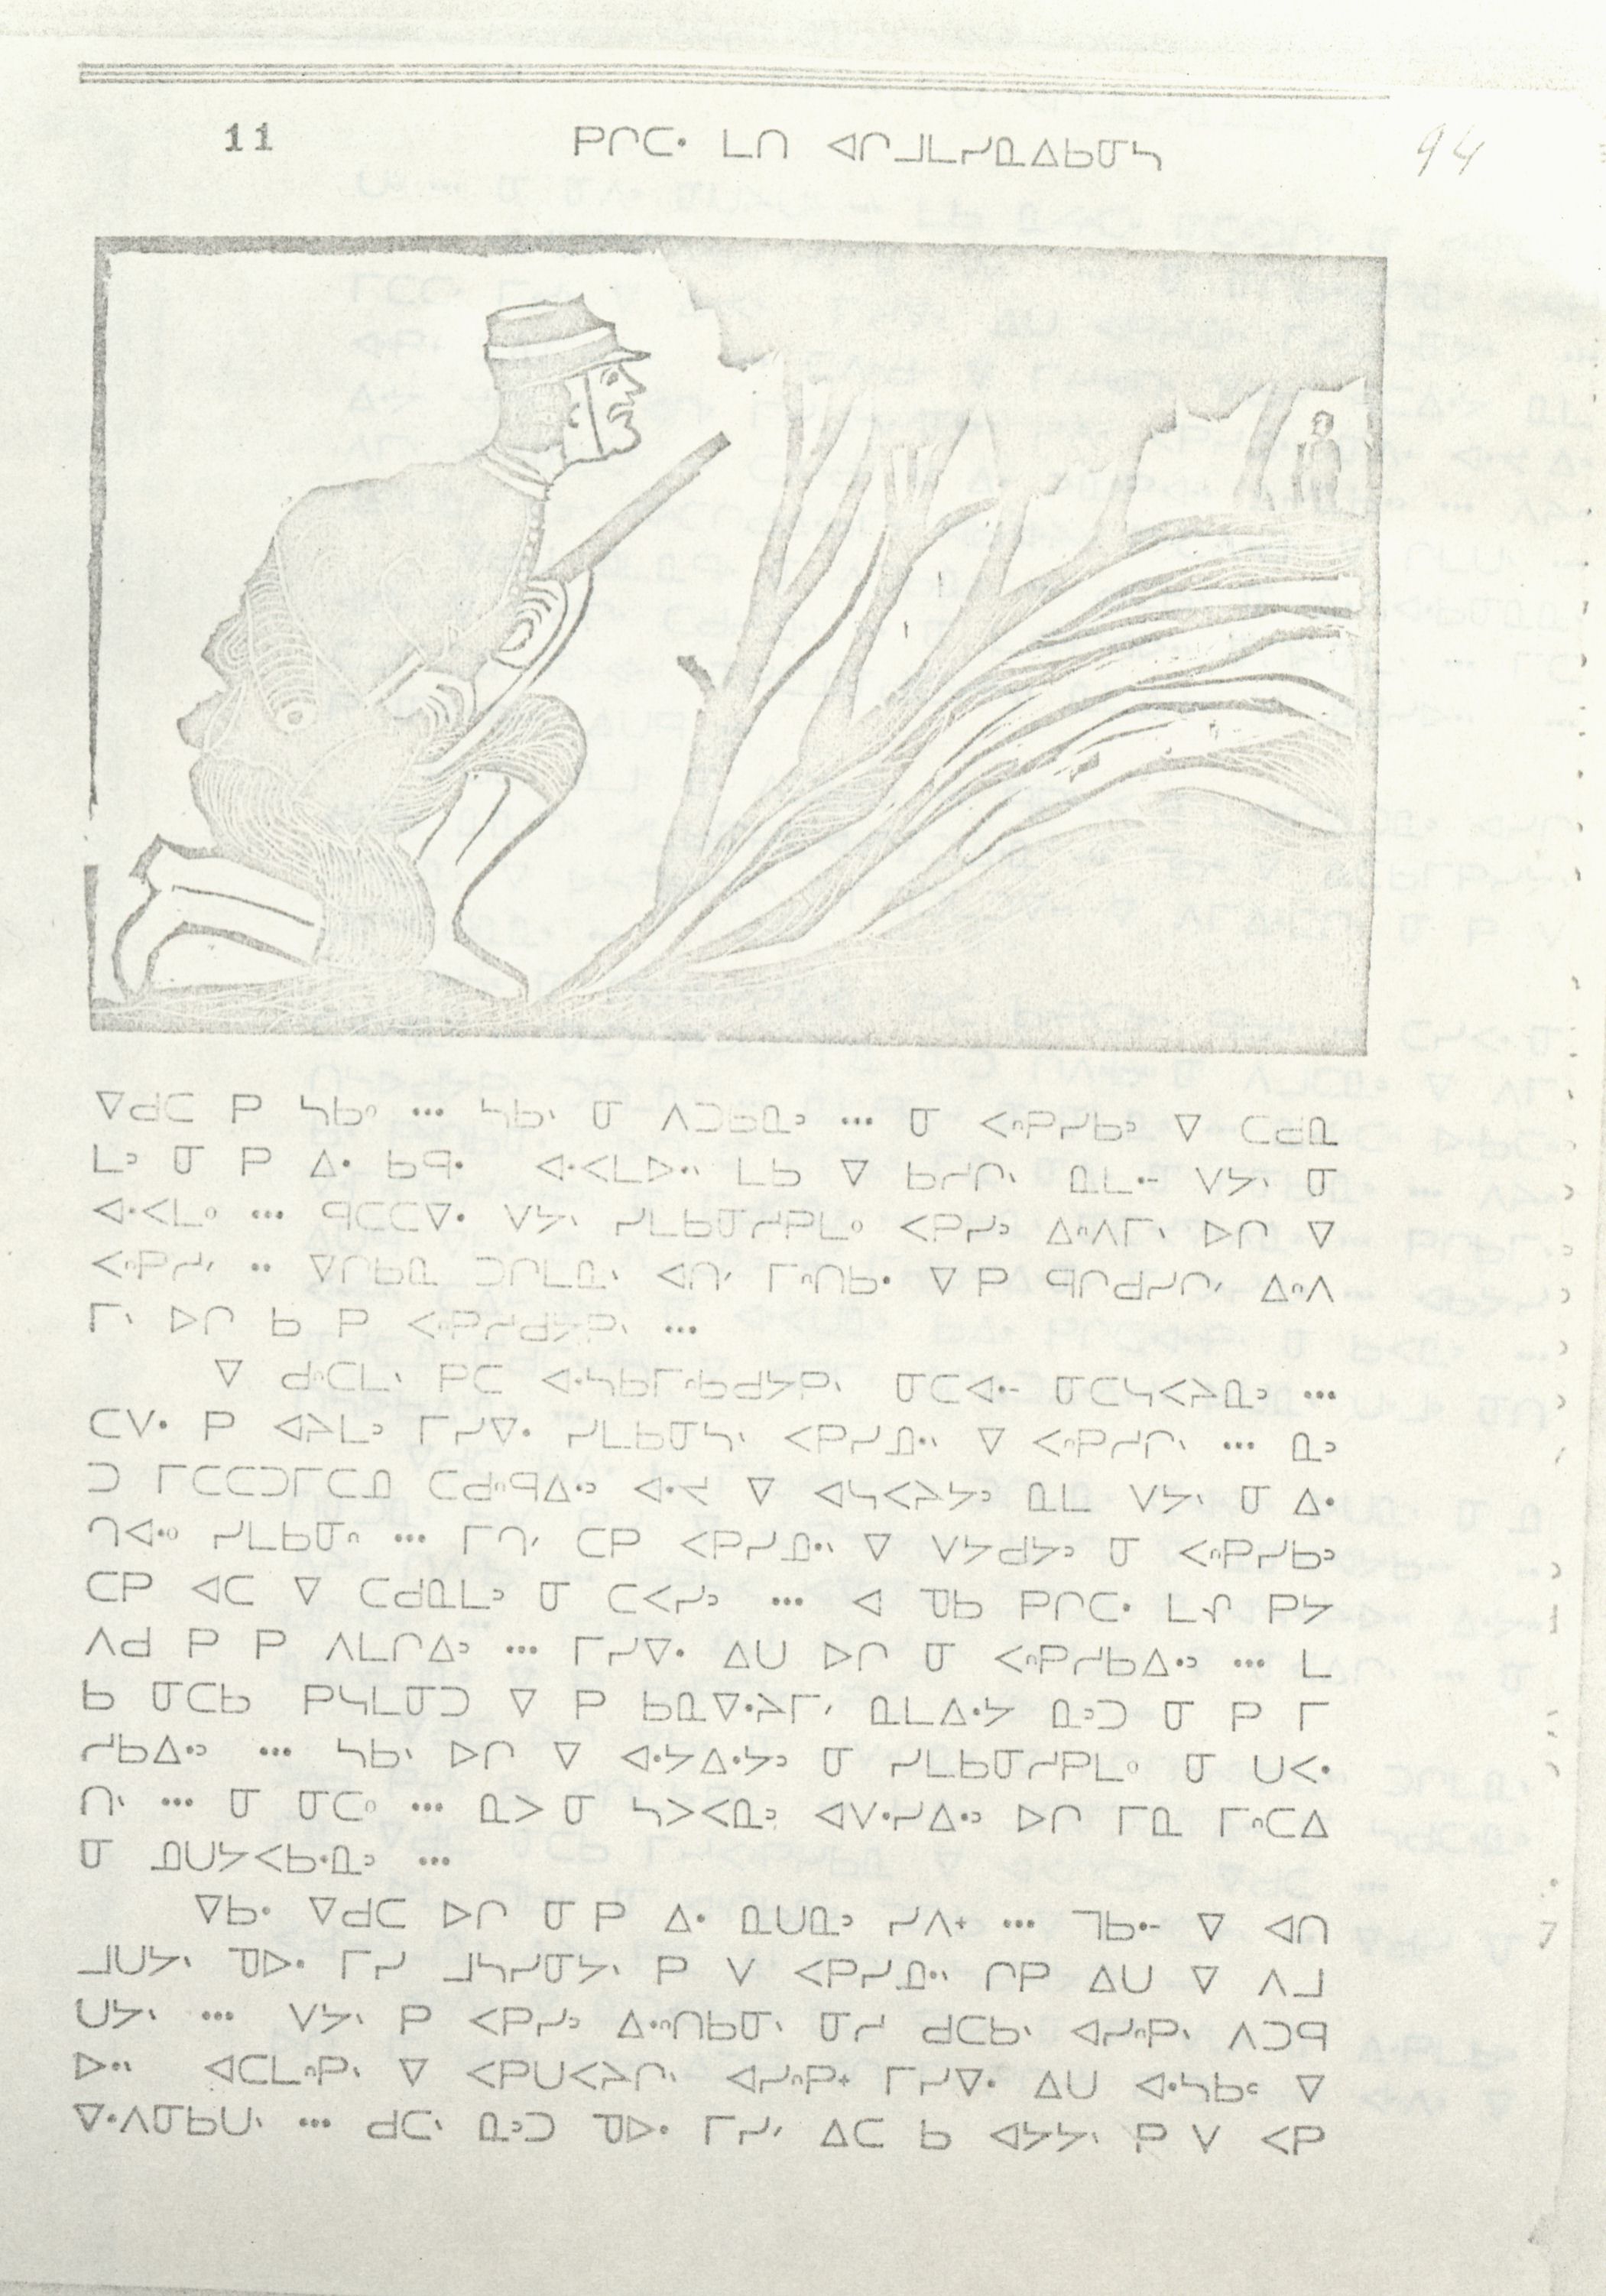 11 ᑭᒋᑕᐧ ᒪᑎ ᐊᒋᒧᒪᓯᓇᐃᑲᓂᓴ 94
ᐁᑯᑕ ᑭ ᓴᑲᐤ ... ᓴᑲᐠ ᓂ ᐱᑐᑲᓇᐣ ... ᓂ ᐸᐢᑭᓯᑲᐣ ᐁ ᑕᑯᓇ
ᒪᐣ ᓂ ᑭ ᐃᐧ ᑲᑫᐧ ᐊᐧᐸᒪᐅᐧᐠ ᒪᑲ ᐁ ᑲᓯᒋᐠ ᓇᒪᐧ ᐯᔭᐠ ᓂ
ᐊᐧᐸᒪᐤ ... ᑫᑕᑕᐁᐧ ᐯᔭᐠ ᓯᒪᑲᓂᓯᑭᒪᐤ ᐸᑭᓯᐣ ᐃᐢᐱᒥᐠ ᐅᒋ ᐁ
ᐸᐢᑭᓱᐟ .. ᐁᑎᑲᓇ ᑐᒋᒪᓇᐠ ᐊᑎᐟ ᒥᐢᑎᑲᐧ ᐁ ᑭ ᑫᒋᑯᓯᒋᐟ ᐃᐢᐱ
ᒥᐠ ᐅᒋ ᑲ ᑭ ᐸᐢᑭᓱᑯᔭᑭᐠ ...
ᐁ ᑯᐢᑕᒪᐠ ᑭᑕ ᐊᐧᓴᑲᒥᐢᑲᑯᔭᑭᐠ ᓂᑕᐊᐧ ᓂᑕᓴᐸᔨᓇᐣ ...
ᑕᐯᐧ ᑭ ᐊᔨᒪᐣ ᒥᓯᐁᐧ ᓯᒪᑲᓂᓴᐠ ᐸᑭᓯᓄᐧᐠ ᐁ ᐸᐢᑭᓱᒋᐠ ... ᓇᐣ
ᑐ ᒥᑕᑕᑐᒥᑕᓄ ᑕᑯᐢᑫᐃᐧᐣ ᐊᐧᔪ ᐁ ᐊᓴᐸᔨᔭᐣ ᓇᒪ ᐯᔭᐠ ᓂ ᐃᐧ
ᒋᐊᐧᐤ ᓯᒪᑲᓂᐢ ... ᒥᒋᐟ ᑕᑭ ᐸᑭᓯᓄᐧᐠ ᐁ ᐯᔭᑯᔭᐣ ᓂ ᐸᐢᑭᓯᑲᐣ
ᑕᑭ ᐊᑕ ᐁ ᑕᑯᓇᒪᐣ ᓂ ᑕᐸᓯᐣ ... ᐊ ᑯᑲ ᑭᒋᑕᐧ ᒪᔑ ᑭᔭ
ᐱᑯ ᑭ ᑭ ᐱᒪᒋᐃᐣ ... ᒥᓯᐁᐧ ᐃᑌ ᐅᒋ ᓂ ᐸᐢᑭᓱᑲᐃᐧᐣ ... ᒪ
ᑲ ᓂᑕᑲ ᑭᓴᒪᓂᑐ ᐁ ᑭ ᑲᓇᐁᐧᔨᒥᐟ ᓇᒪᐃᐧᔭ ᓇᐣᑐ ᓂ ᑭ ᒥ
ᓱᑲᐃᐧᐣ ... ᓴᑲᐠ ᐅᒋ ᐁ ᐊᐧᔭᐃᐧᔭᐣ ᓂ ᓯᒪᑲᓂᓱᑭᒪᐤ ᓂ ᑌᐸᐧ
ᑎᐠ ... ᓂ ᓂᑕᐤ ... ᓇᐳ ᓂ ᓴᐳᐸᓇᐣ ᐊᐯᐧᓯᐃᐧᐣ ᐅᒋ ᒥᓇ ᒥᐢᑕᐃ
ᓂ ᓄᑌᔭᐸᑲᐧᓇᐣ ...
ᐁᑲᐧ ᐁᑯᑕ ᐅᒋ ᓂ ᑭ ᐃᐧ ᓇᑌᓇᐣ ᓯᐱᕀ ... ᒣᑲᐧ ᐁ ᐊᑎ
ᒧᑌᔭᐠ ᑯᐅᐧ ᒥᓯ ᒧᓴᓯᓂᔭᐠ ᑭ ᐯ ᐸᑭᓯᓄᐧᐠ ᒋᑭ ᐃᑌ ᐁ ᐱᒧ
ᑌᔭᐠ ... ᐯᔭᐠ ᑭ ᐸᑭᓯᐣ ᐃᐧᐢᑎᑲᓂᐠ ᓂᓱ ᑯᑕᑲᐠ ᐊᓯᐢᑭᐠ ᐱᑐᑫ
ᐅᐧᐠ ᐊᑕᒪᐢᑭᐠ ᐁ ᐸᑭᑌᐸᔨᒋᐠ ᐊᓯᐢᑭᕀ ᒥᓯᐁᐧ ᐃᑌ ᐊᐧᓴᑲᒼ ᐁ
ᐁᐧᐱᓂᑲᑌᐠ ... ᑯᑕᐠ ᓇᐣᑐ ᑯᐅᐧ ᒥᓯᐟ ᐃᑕ ᑲ ᐊᔭᔭᐠ ᑭ ᐯ ᐸᑭ